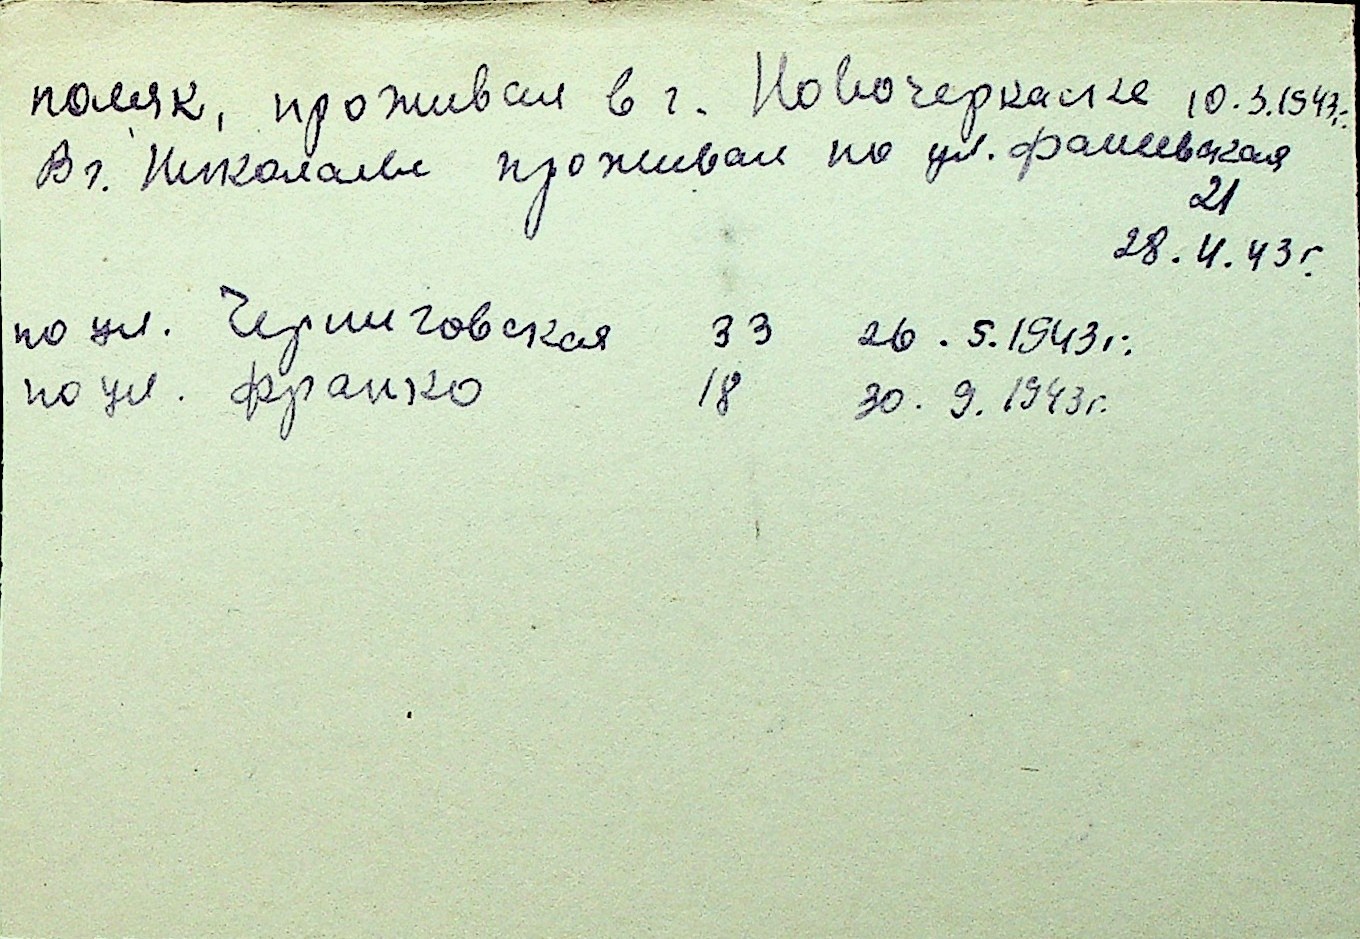 поляк, проживал в г. Новочеркаске 10.3.1943г.
В г. Николаеве проживал по ул. Фалеевская
21
28.4.43г.
по ул. Черниговская 33 26.5.1943г.
по ул. Франко 18 30.9.1943г.